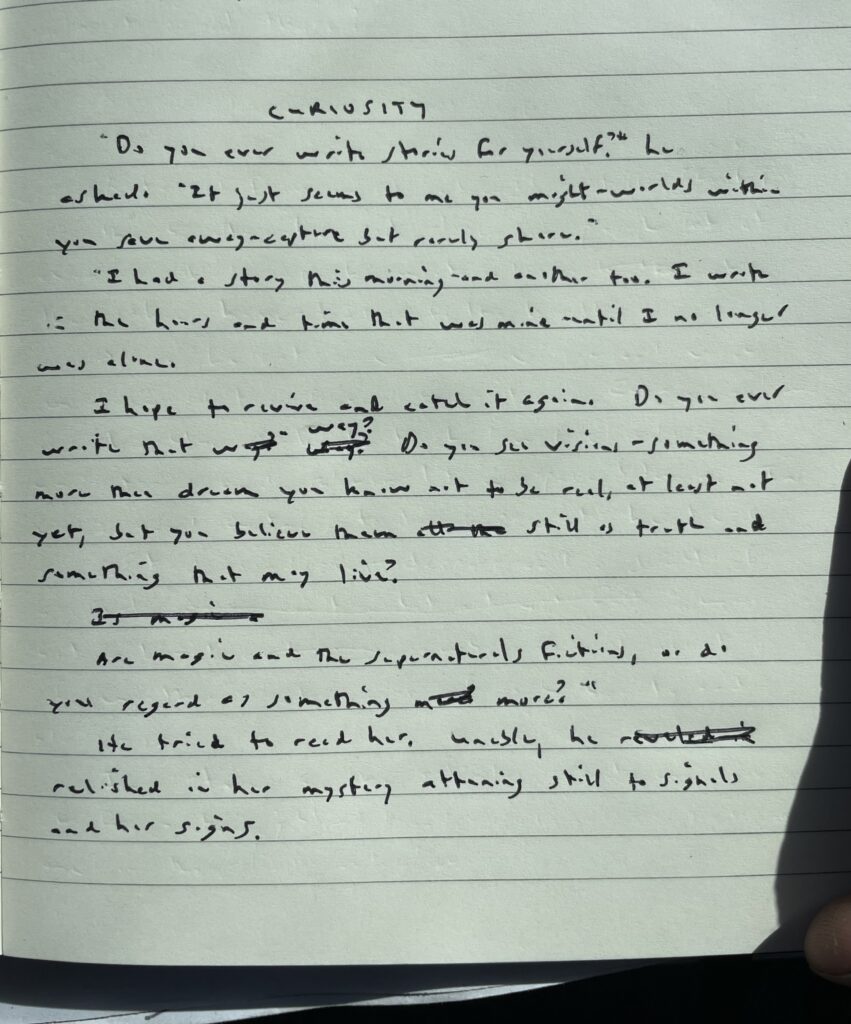 CURIOSITY
"Do you ever write stories for yourself?" he
asked. "It just seems to me you might-worlds within
you save away-capture but rarely share."
"I had a story this morning-and another too. I wrote
in the hours and time that was mine until I no longer
was alone.
I hope to revive and catch it again. Do you ever
write that way? Do you see visions-something
more than dream you know not to be real, at least not
yet, but you believe them still as truth and
something that may live?
Is magic
Are magic and the supernaturals fictions, or do
you regard as something more?"
He tried to read her. Unable, he
relished in her mystery attuning still to signals
and her signs.